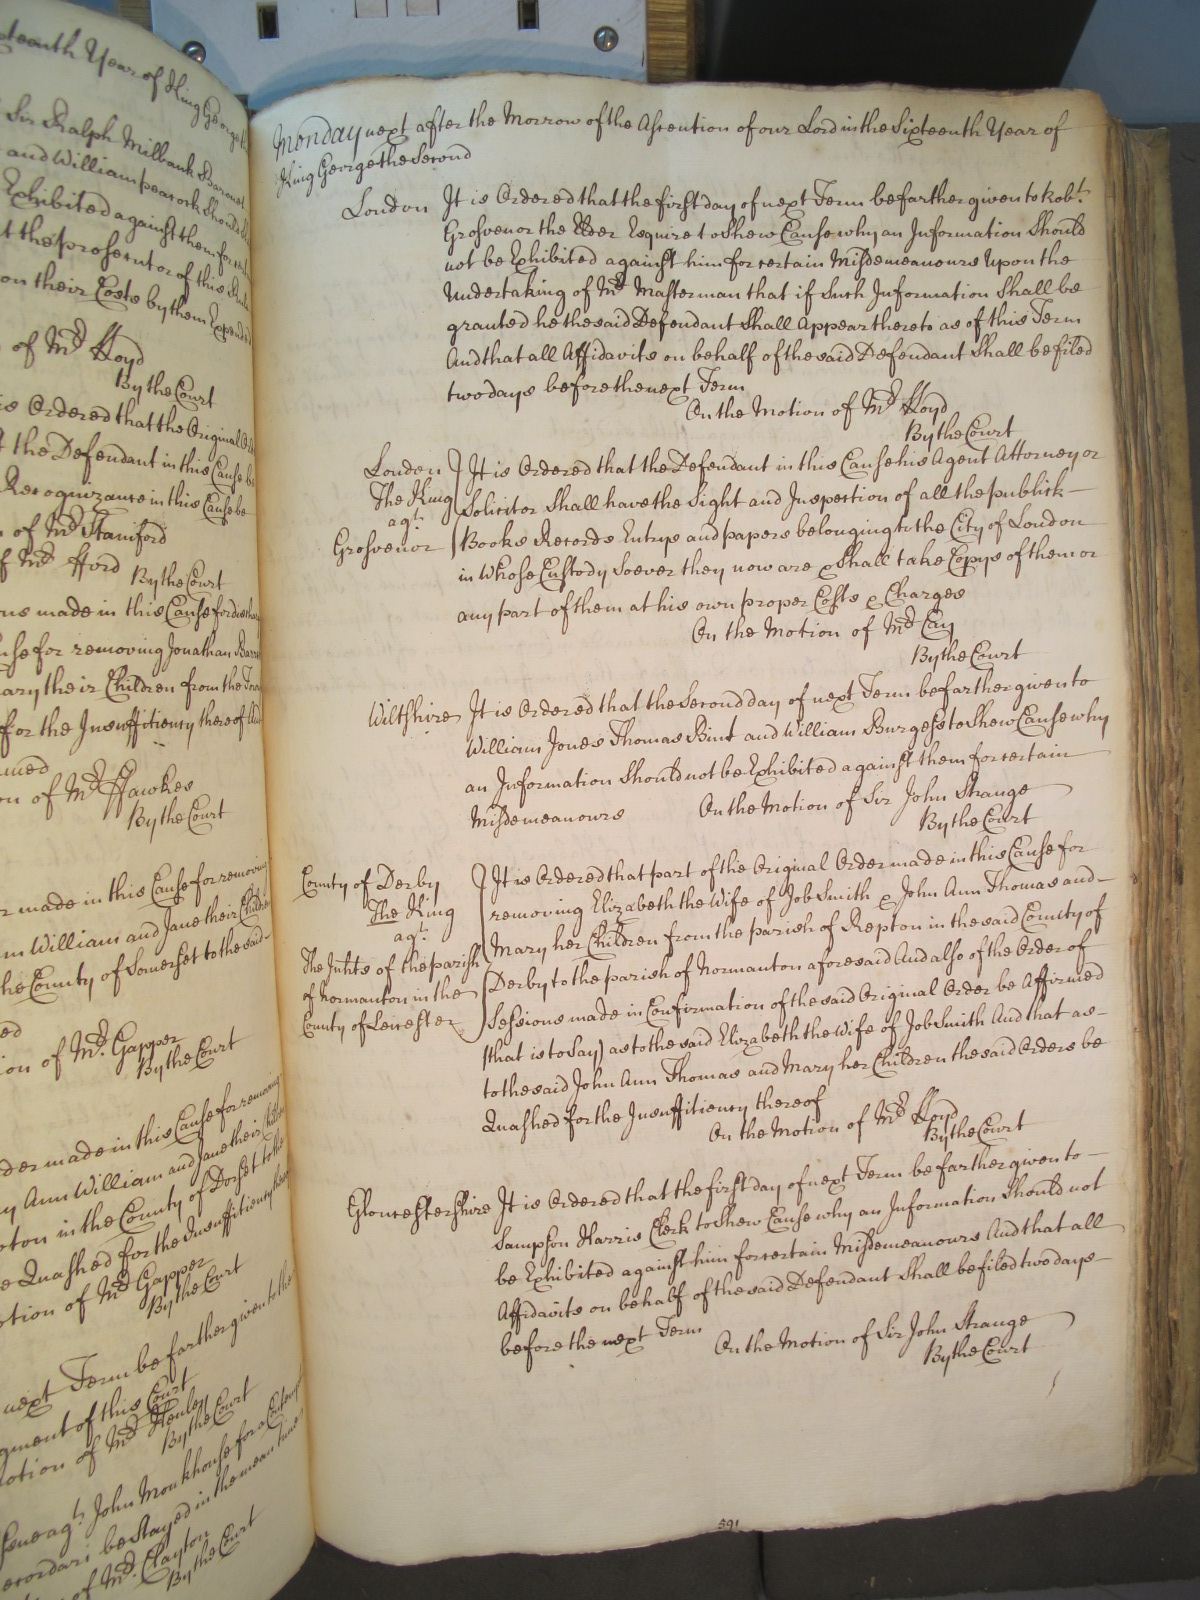 teenth Year of King George
Sir Ralph Milbank Baronet
and William pearock Should
Exhibited against them for
t the prosecutor of this
on their Costs by them Expended
of Mr. Lloyd
By the Court
is Ordered that the Original
the Defendant in this Cause be
Recognizance in this Cause be
of Mr. Staniford
of Mr. fford By the Court
ons made in this Cause for
use for removing Jonathan
ary their Children from the
for the Insufficiency thereof
on of Mr. Hawkes
By the Court
r made in this Cause for removing
m William and Jane their Children
the County of Somerset to the said
ed
ion of Mr. Gapper
By the Court
der made in this Cause for removing
y Ann William and Jane their
ton in the County of Dorset to the
e Quashed for the Insufficiency
otion of Mr. Gapper
By the Court
next Term be farther given to the
gment of this Court
otion of Mr. Henley
By the Court
agt. John Monkhouse for a
be Stayed in the mean time
of Mr. Clayton
By the Court
Monday next after the Morrow of the Ascention of our Lord in the Sixteenth Year of
King George the Second
London It is Ordered that the first day of next Term be farther given to Robt.
Grosvenor the Elder Esquire to Shew Cause why an Information Should
not be Exhibited against him for certain Misdemeanours Upon the
Undertaking of Mr. Masterman that if Such Information Shall be
granted he the said Defendant Shall Appear thereto as of this Term
And that all Affidavits on behalf of the said Defendant Shall be filed
two days before the next Term
On the Motion of Mr. Lloyd
By the Court
London It is Ordered that the Defendant in this Cause his Agent Attorney or
The King Solicitor Shall have the Sight and Inspection of all the publick
agt.
Grosvenor Books Records Entrys and papers belonging to the City of London
in Whose Custody Soever they now are & Shall take Copys of them or
any part of them at his own proper Costs & Charges
On the Motion of Mr. Cay
By the Court
Wiltshire It is Ordered that the Second day of next Term be farther given to
William Jones Thomas Bint and William Burgess to Shew Cause why
an Information Should not be Exhibited against them for certain
Misdemeanours On the Motion of Sir John Strange
By the Court
County of Derby It is Ordered that part of the Original Order made in this Cause for
The King removing Elizabeth the Wife of Job Smith & John Ann Thomas and
agt. Mary her Children from the parish of Repton in the said County of
The Inhts of the parish Derby to the parish of Normanton aforesaid And also of the Order of
of Normanton in the Sessions made in Confirmation of the said Original Order be Affirmed
County of Leicester (that is to Say) as to the said Elizabeth the Wife of Job Smith And that as
to the said John Ann Thomas and Mary her Children the said Orders be
Quashed for the Insufficiency thereof
On the Motion of Mr. Lloyd
By the Court
Gloucestershire It is Ordered that the first day of next Term be farther given to
Sampson Harris Clerk to Shew Cause why an Information Should not
be Exhibited against him for certain Misdemeanours And that all
Affidavits on behalf of the said Defendant Shall be filed two days
before the next Term On the Motion of Sir John Strange
By the Court
591